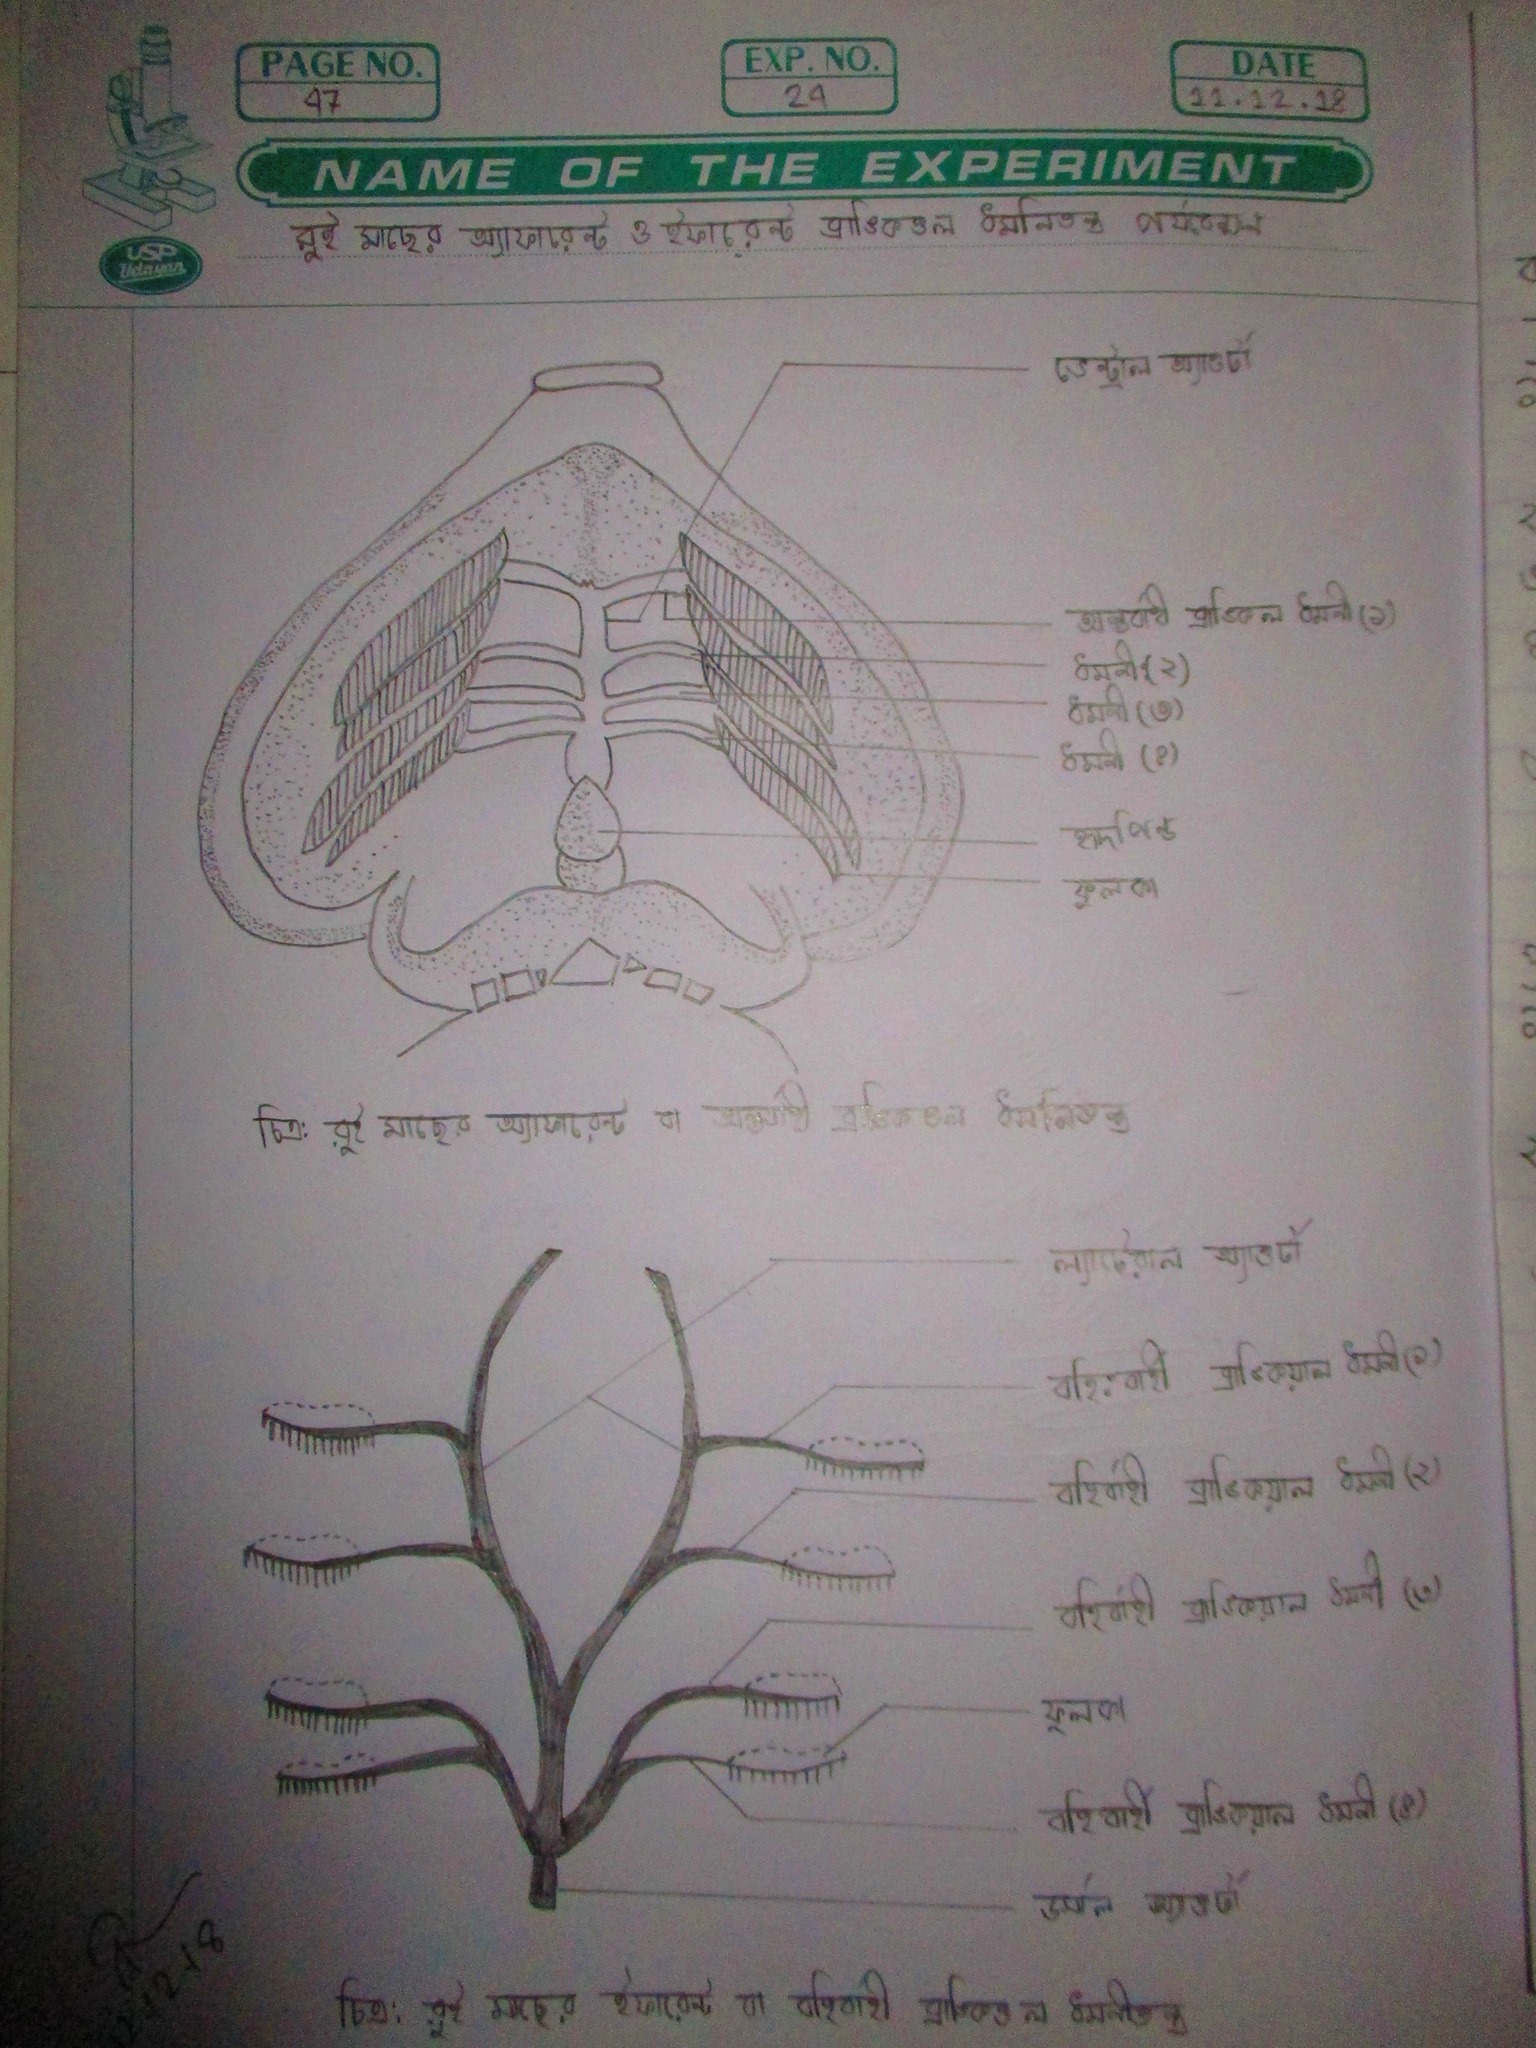 PAGE NO.
47
EXP. NO.
24
DATE
11.12.18
NAME OF THE EXPERIMENT
রুই মাছের অ্যাফারেন্ট ও ইফারেন্ট ব্রাঙ্কিওল ধমনিতন্ত্র পর্যবেক্ষণ
USP
Udayan
ভেন্ট্রাল অ্যাওর্টা
অন্তর্বাহী ব্রাঙ্কিওল ধমনী (১)
ধমনী (২)
ধমনী (৩)
ধমনী (৪)
হৃদপিন্ড
ফুলকা
চিত্র: রুই মাছের অ্যাফারেন্ট বা অন্তর্বাহী ব্রাঙ্কিওল ধমনিতন্ত্র
ল্যাটেরাল অ্যাওর্টা
বহিঃবাহী ব্রাঙ্কিয়াল ধমনী (১)
বহির্বাহী ব্রাঙ্কিয়াল ধমনী (২)
বহির্বাহী ব্রাঙ্কিয়াল ধমনী (৩)
ফুলকা
বহির্বাহী ব্রাঙ্কিয়াল ধমনী (৪)
ডর্সাল অ্যাওর্টা
12.18
চিত্র: রুই মাছের ইফারেন্ট বা বহির্বাহী ব্রাঙ্কিওল ধমনীতন্ত্র